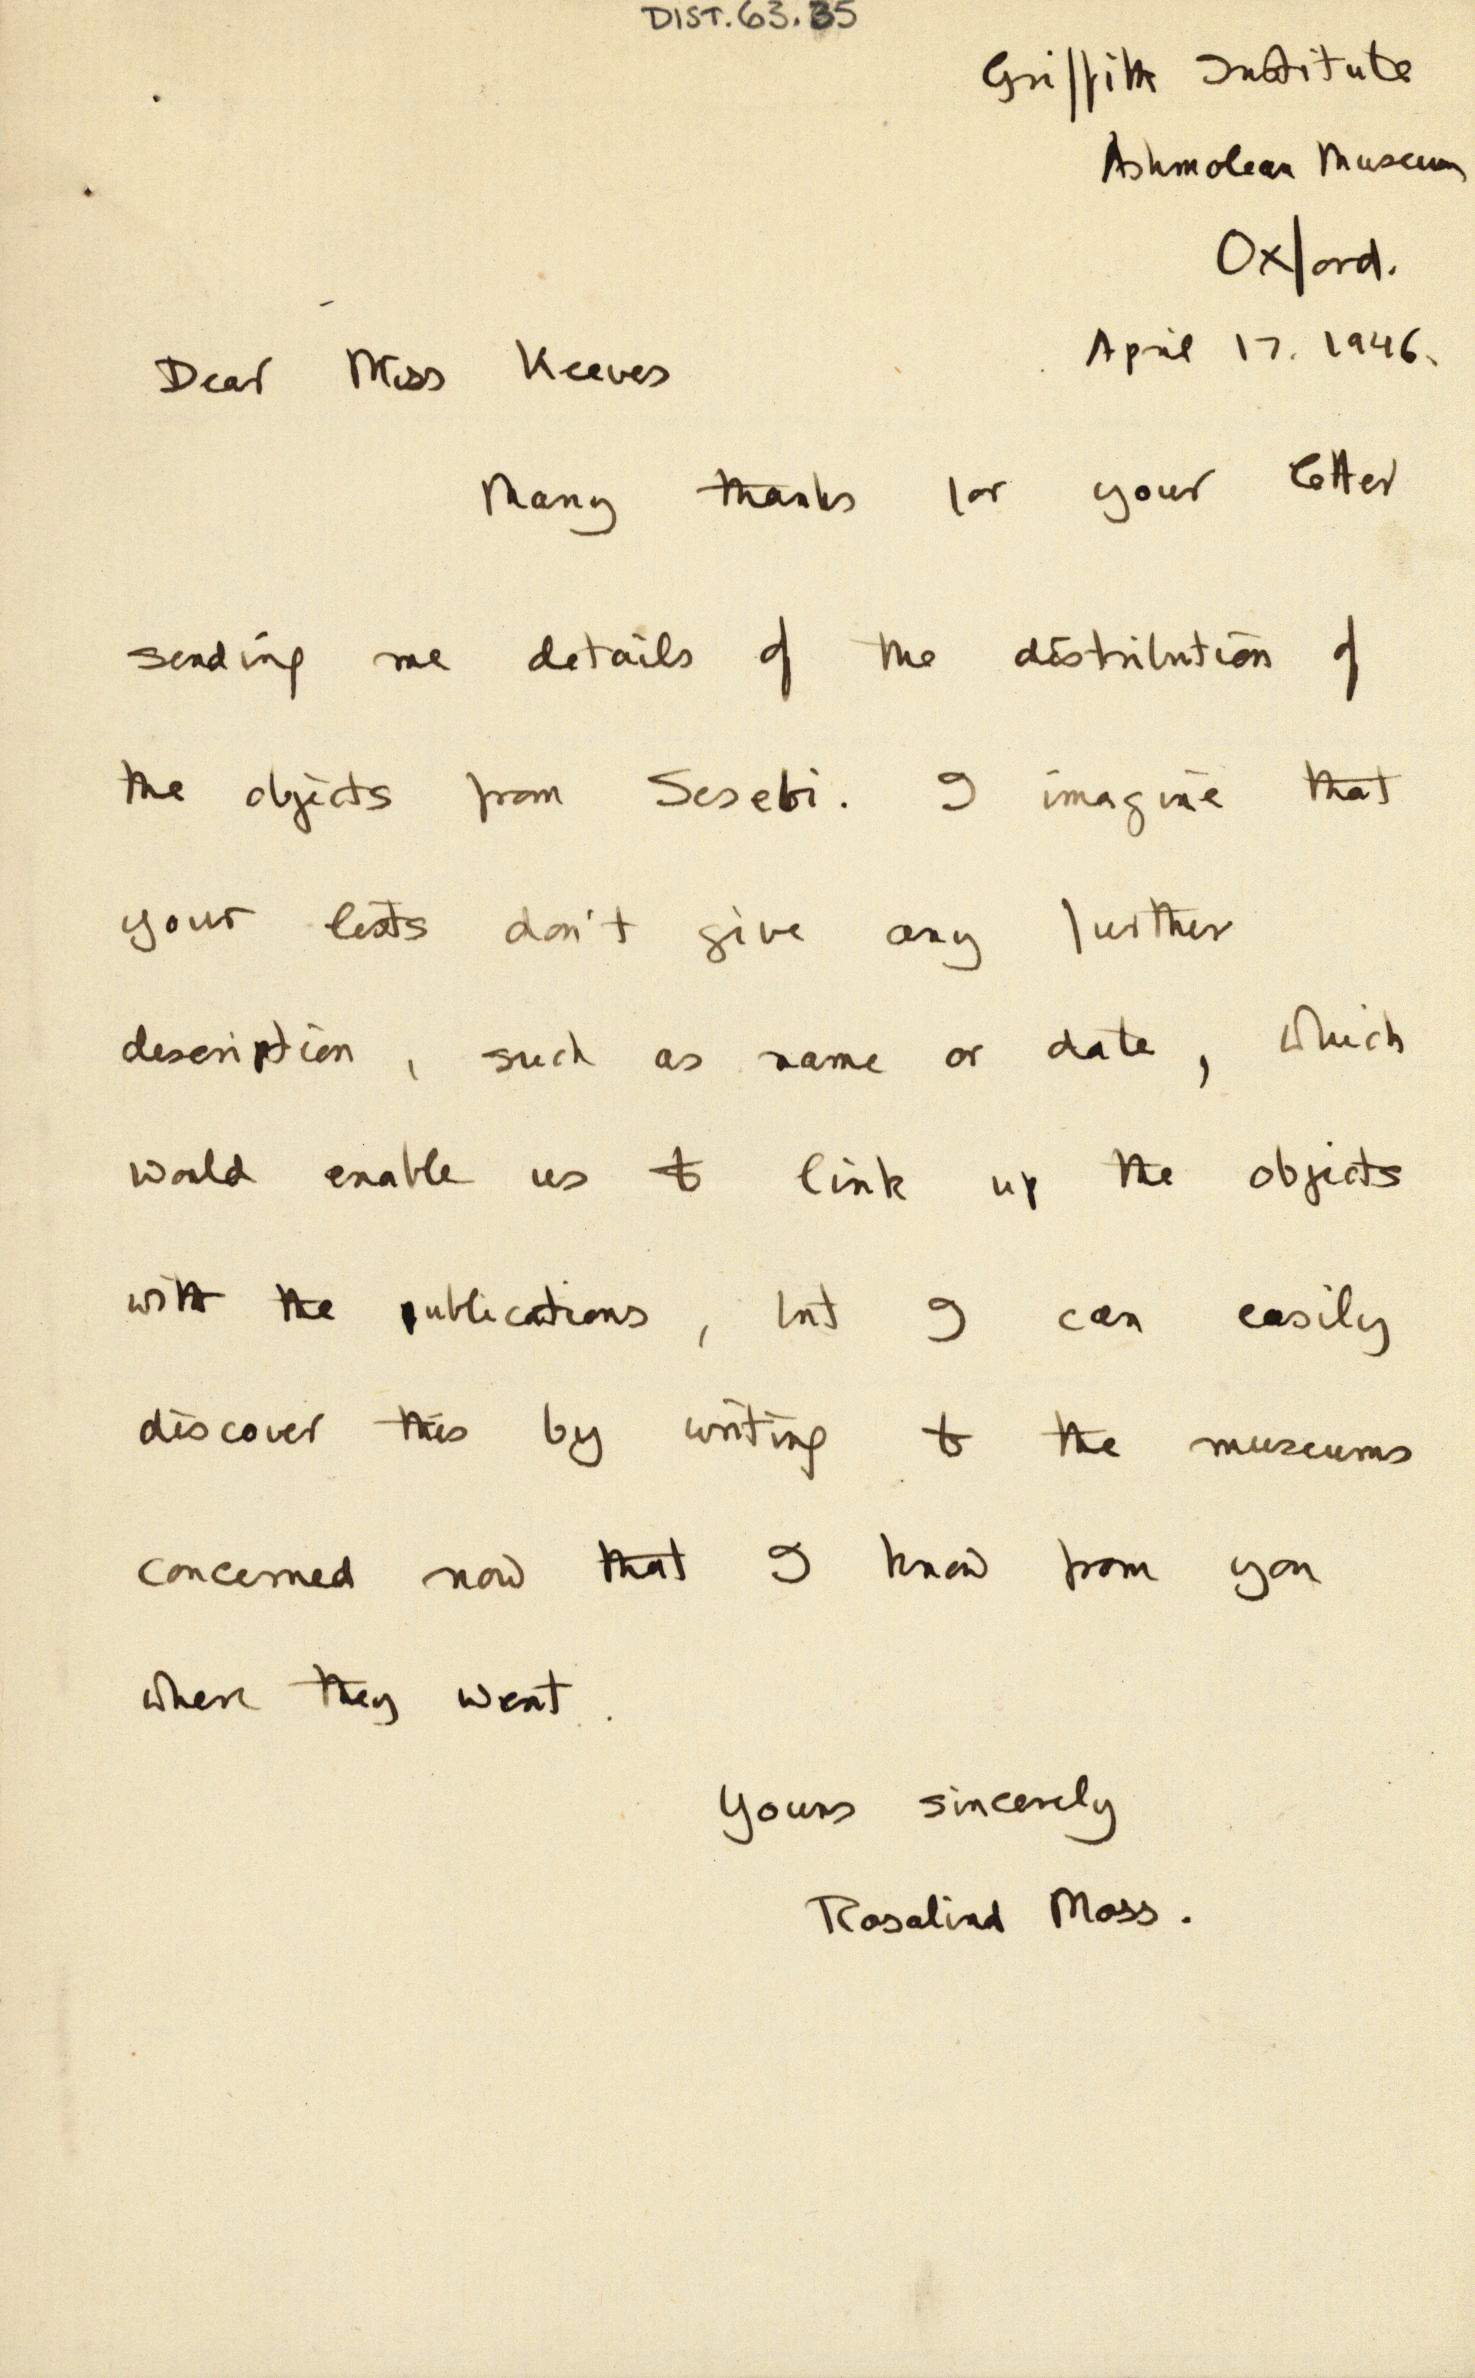 DIST.63.35
Griffith Institute
Ashmolean Museum
Oxford.
April 17. 1946.
Dear Miss Keeves
Many thanks for your letter
sending me details of the distribution of
the objects from Sesebi. I imagine that
your lists don't give any further
description, such as name or date, which
would enable us to link up the objects
with the publications, but I can easily
discover this by writing to the museums
concerned now that I know from you
where they went.
Yours sincerely
Rosalind Moss.